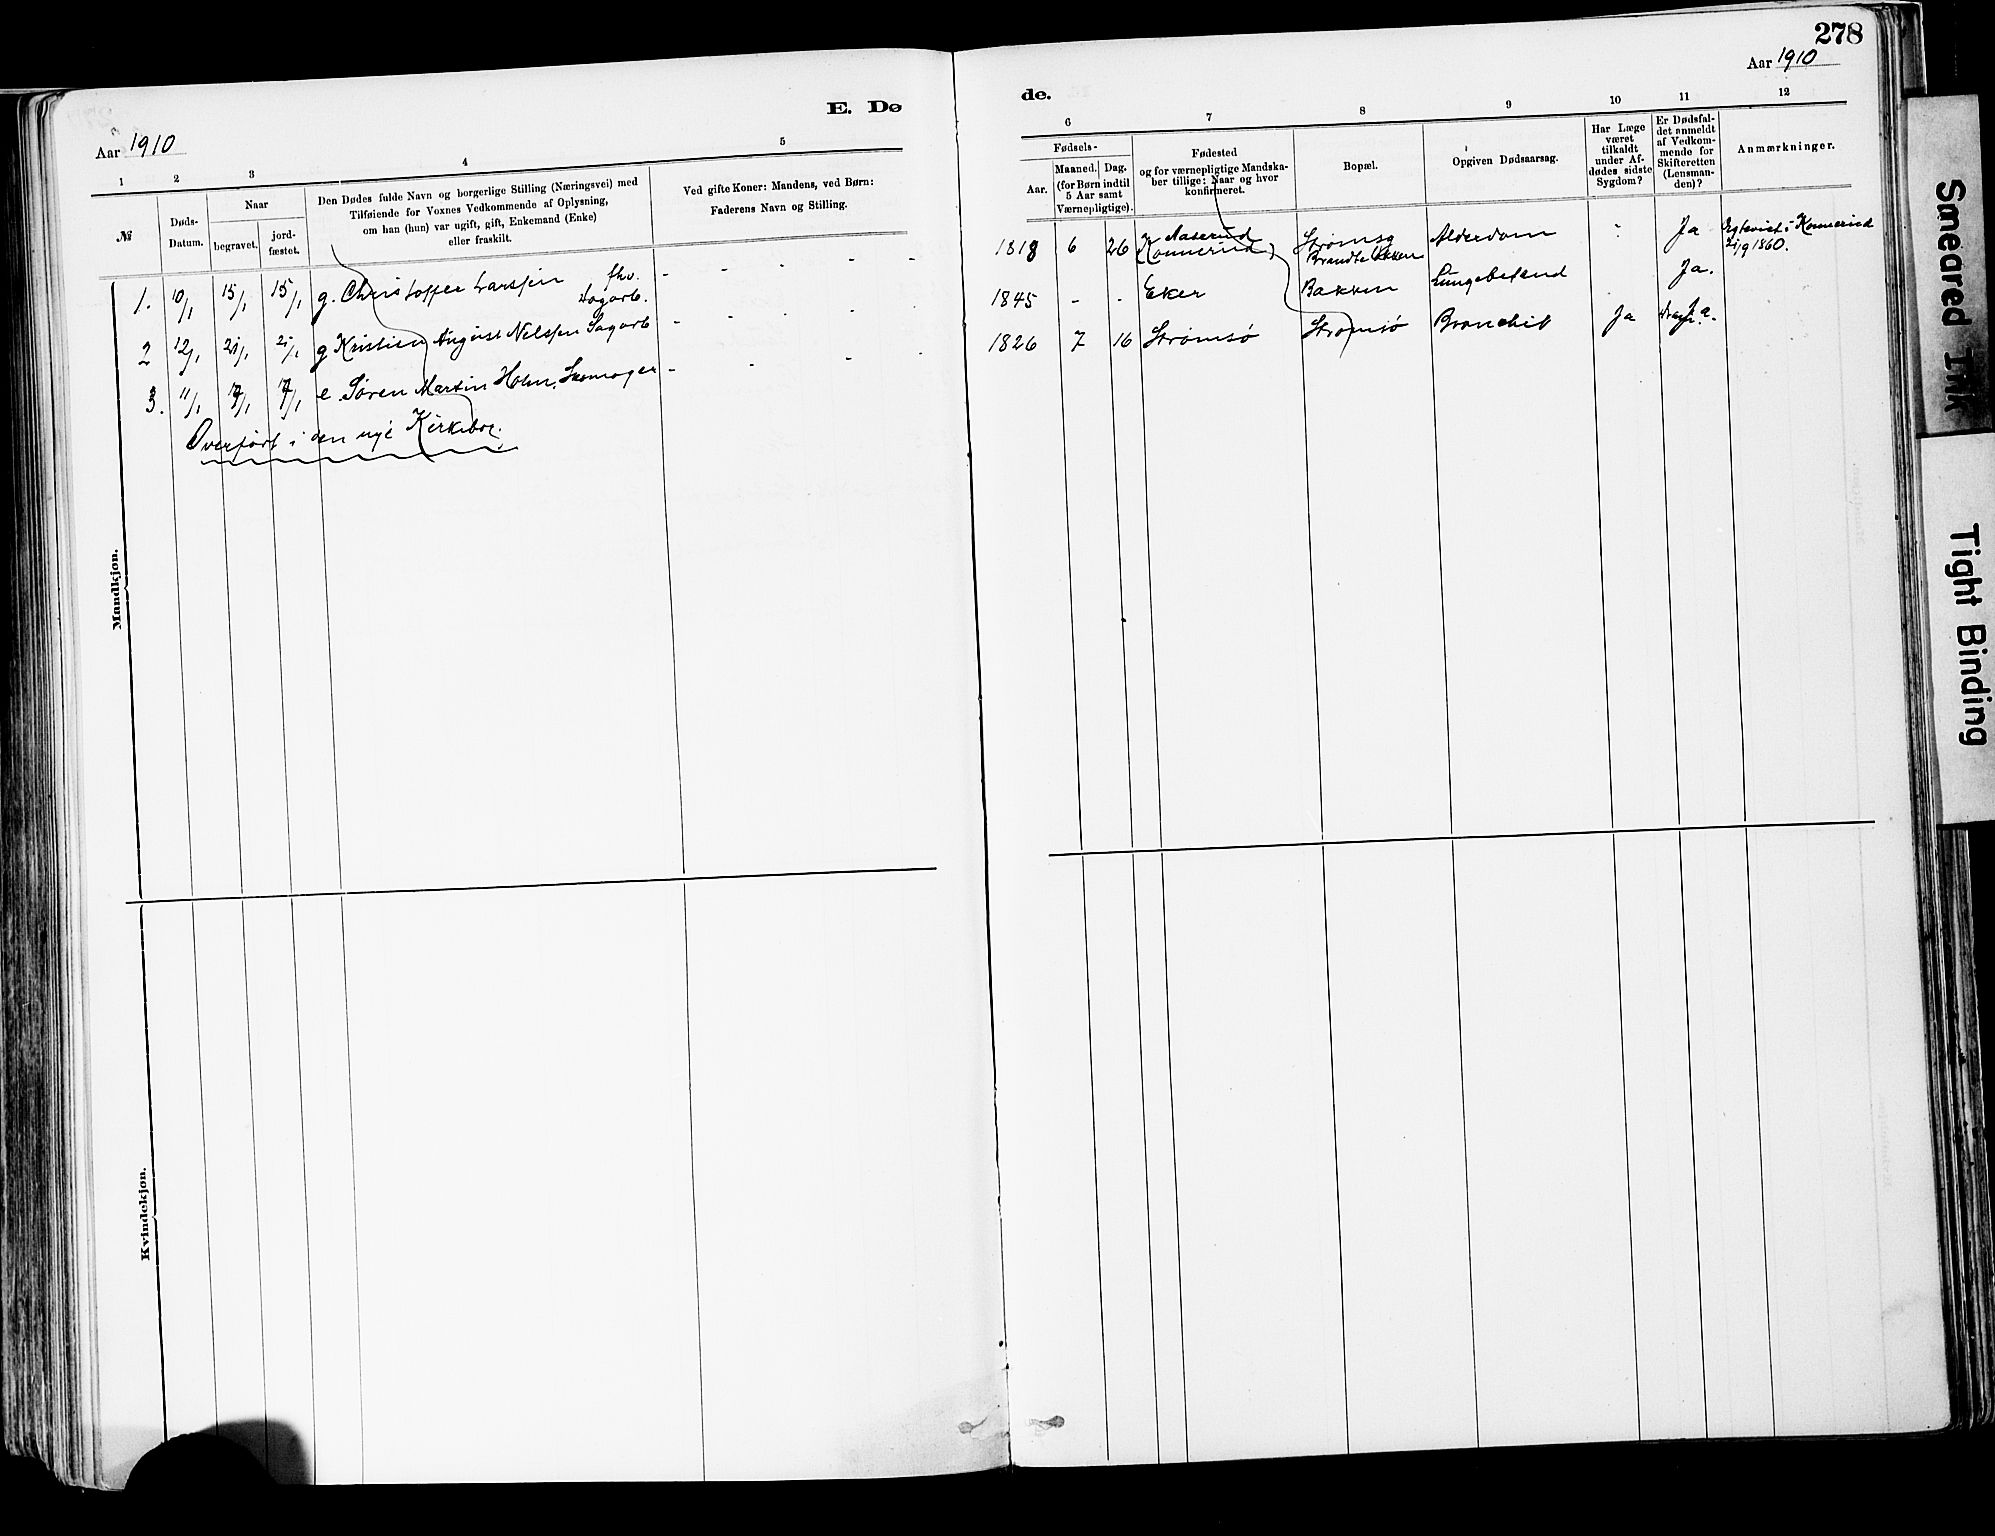 278
Aar 1910
E. Dø
de.
Aar 1910
1 2 3 4 5
6 7 8 9 10 11 12
№
Døds-
Datum.
Naar
begravet.
jord-
fæstet.
Den Dødes fulde Navn og borgerlige Stilling (Næringsvei) med
Tilføiende for Voxnes Vedkommende af Oplysning,
om han (hun) var ugift, gift, Enkemand (Enke)
eller fraskilt.
Ved gifte Koner: Mandens, ved Børn:
Faderens Navn og Stilling.
Fødsels-
Aar.
Maaned.
Dag.
(for Børn indtil
5 Aar samt
Værnepligtige).
Fødested
og for værnepligtige Mandska-
ber tillige: Naar og hvor
konfirmeret.
Bopæl.
Opgiven Dødsaarsag.
Har Læge
været
tilkaldt
under Af-
dødes sidste
Sygdom?
Er Dødsfal-
det anmeldt
af Vedkom-
mende for
Skifteretten
(Lensman-
den)?
Anmærkninger.
1. 10/1 15/1 15/1 g. Christoffer Larssen fhv.
- - - - -
1818 6 26 Aaserud Strømsg Alderdom Ja i Konnerud
(Konnerud) 1860.
2 12/1 21/1 21/1 g Kristian August Nelssen Sagarb
- - - - -
1845 - - Eker Bakken Ja.
3. 11/1 17/1 17/1 e. Søren Martin Holm, Skomager
- - - -
1826 7 16 Strømsø Strømsø Bronchit Ja Ja.
Overført i den nye Kirkebog.
Mandkjøn.
Kvindekjøn.
Smeared Ink
Tight Binding